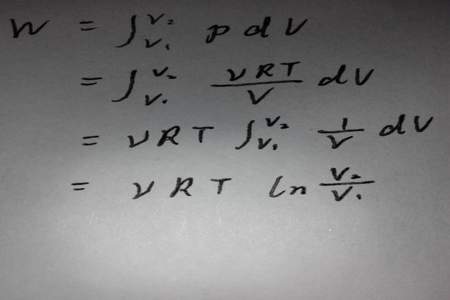 W = ∫_{V₁}^{V₂} p dV
= ∫_{V₁}^{V₂} νRT/V dV
= νRT ∫_{V₁}^{V₂} 1/V dV
= νRT ln V₂/V₁